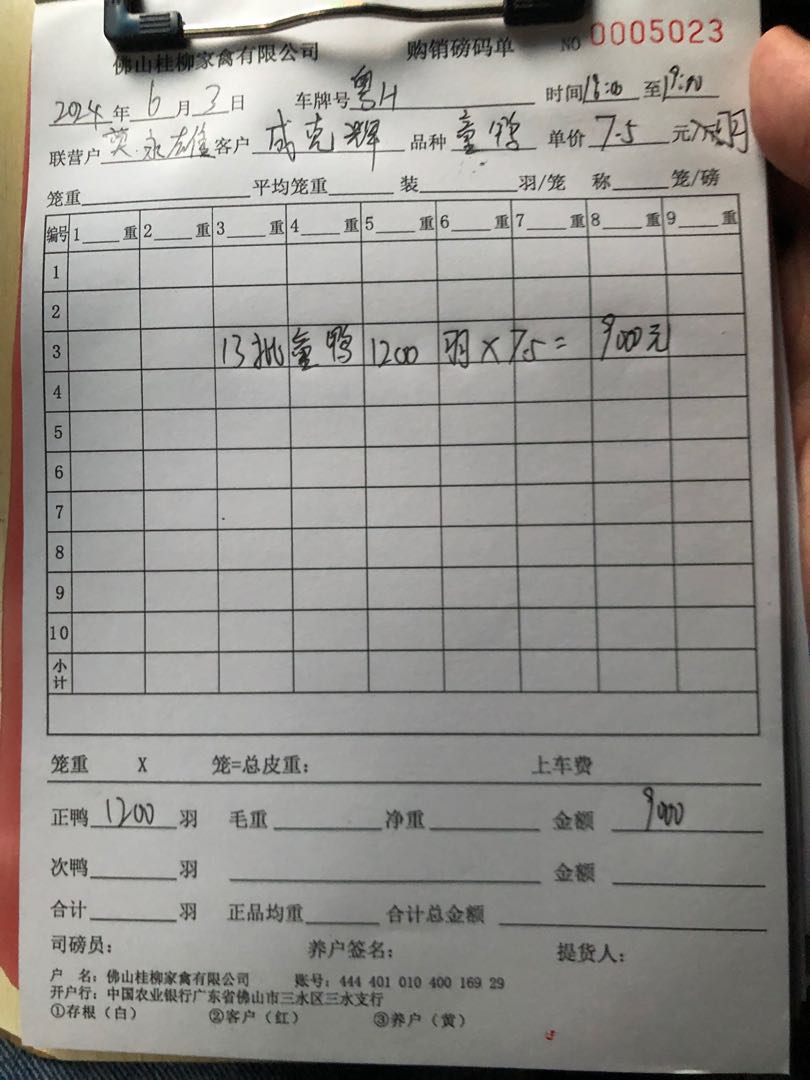 佛山桂柳家禽有限公司 购销磅码单 NO 0005023
2024年6月3日 车牌号粤H 时间18:00至19:00
联营户 永雄 客户 成克辉 品种 童鸭 单价 7.5 元/羽
笼重 平均笼重 装 羽/笼 称 笼/磅
编号 1 重 2 重 3 重 4 重 5 重 6 重 7 重 8 重 9 重
1
2
3 13批童鸭1200羽×7.5=9000元
4
5
6
7
8
9
10
小计
笼重 X 笼=总皮重: 上车费
正鸭 1200 羽 毛重 净重 金额 9000
次鸭 羽 金额
合计 羽 正品均重 合计总金额
司磅员: 养户签名: 提货人:
户 名:佛山桂柳家禽有限公司 账号:444 401 010 400 169 29
开户行:中国农业银行广东省佛山市三水区三水支行
①存根(白) ②客户(红) ③养户(黄)